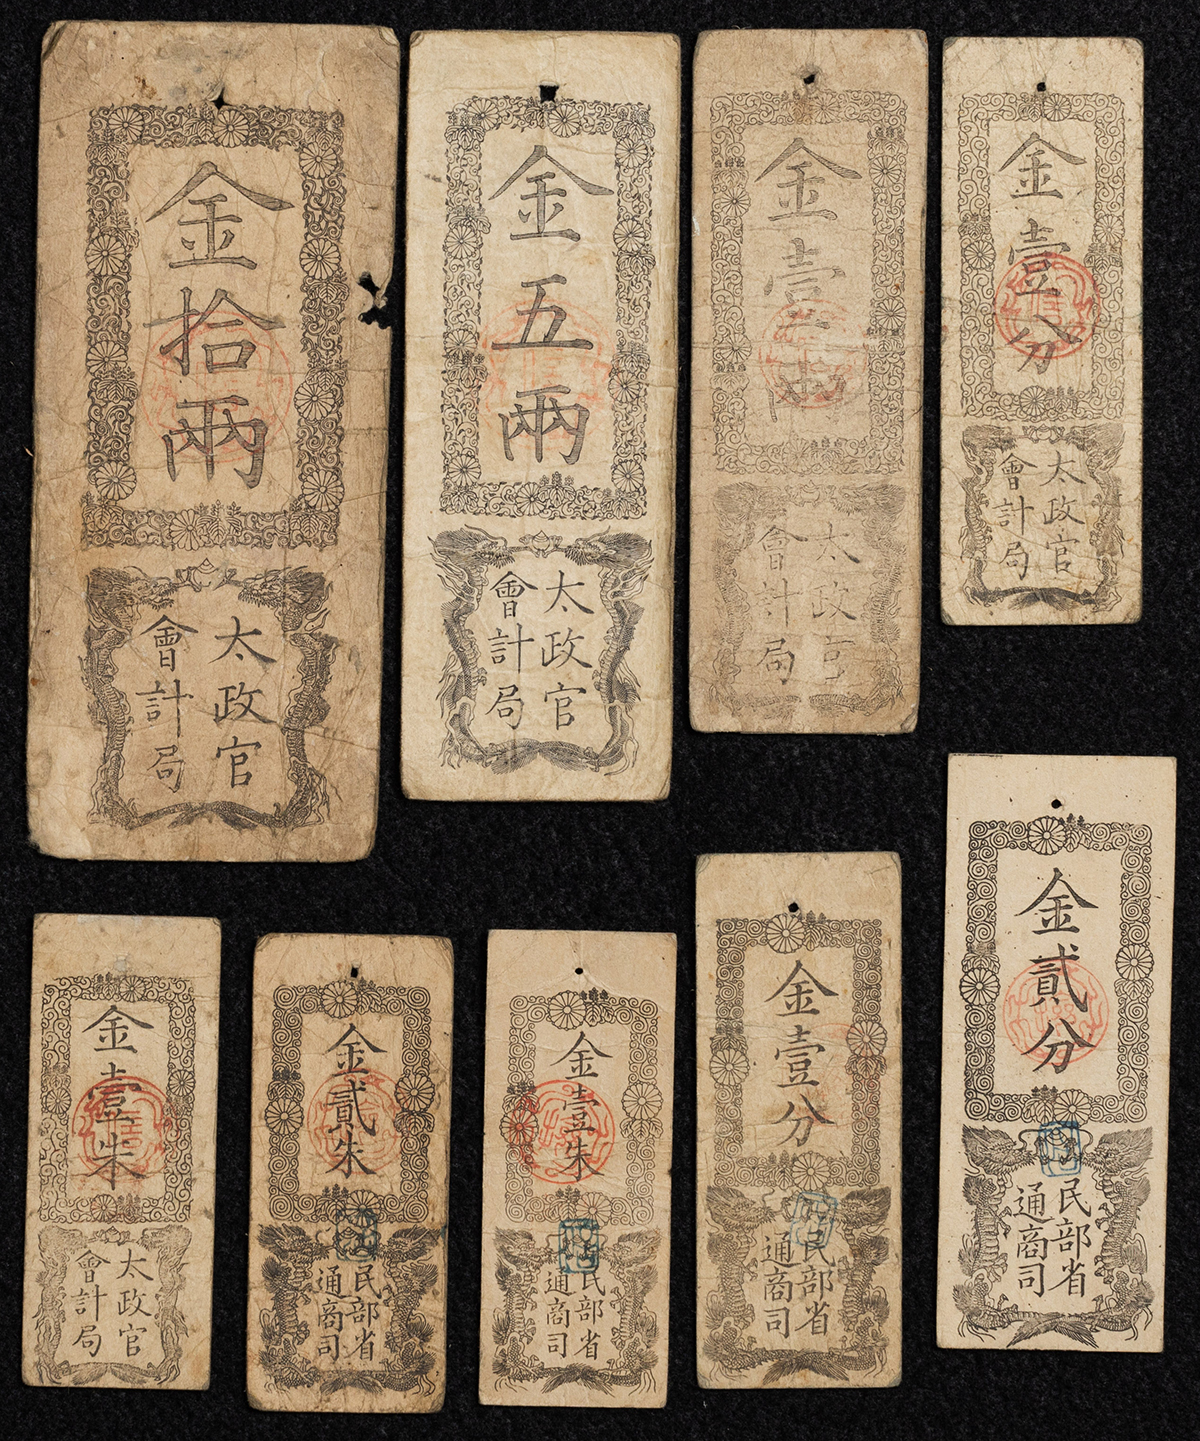 金拾兩
太政官
會計局
金五兩
太政官
會計局
金壹兩
太政官
會計局
金壹分
太政官
會計局
金壹朱
太政官
會計局
金貳朱
民部省
通商司
金壹朱
民部省
通商司
金壹分
民部省
通商司
金貳分
民部省
通商司